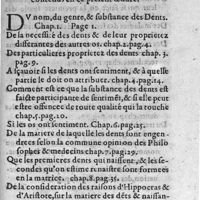 DV nom, du genre, & substance des Dents.
Chap.1. Page 1.
De la necessité des dents & de leur proprietez
differentes des autres os. chap.2. pag.4.
Des particulieres proprietez des dents chap.
pag.9.
Asçauoir si les dents ont sentiment, & à quelle
partie le doit on attribuer. chap.4. pag.14.
Comment est ce que la substance des dents est
faite participante de sentimẽt, & si elle peut
offenser de toute morte qualité qui la touche
chap.5. pag.20.
Si les os ont sentiment. Chap.6. pag.25.
De la matiere de laquelle les dents sont engen-
drees selon la commune opinion des Philo
sophes & medecins. chap.7. pag.29.
Que les premieres dents qui naissent, & les se-
condes qu'on estime renaistre sont formees
en la matrice. chap.8. pag.35.
De la consideration des raisons d'Hippocras &
d'Aristote, sur la matiere des dẽts & naissan-